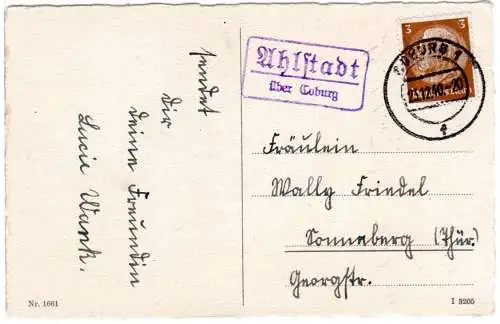 sendet
dir
deine Freundin
Lucie Wank.
Ahlstadt
über Coburg
3
3
COBURG 1
23.12.40.-20
a
Fräulein
Wally Friedel
Sonneberg (Thür.)
Georgstr.
Nr. 1661
I 3205